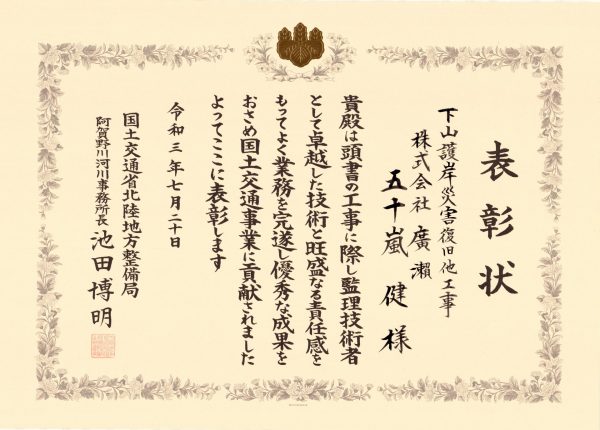 表彰状
下山護岸災害復旧他工事
株式会社 廣瀬
五十嵐 健 様
貴殿は頭書の工事に際し監理技術者
として卓越した技術と旺盛なる責任感を
もってよく業務を完遂し優秀な成果を
おさめ国土交通事業に貢献されました
よってここに表彰します
令和三年七月二十日
国土交通省北陸地方整備局
阿賀野川河川事務所長 池田博明